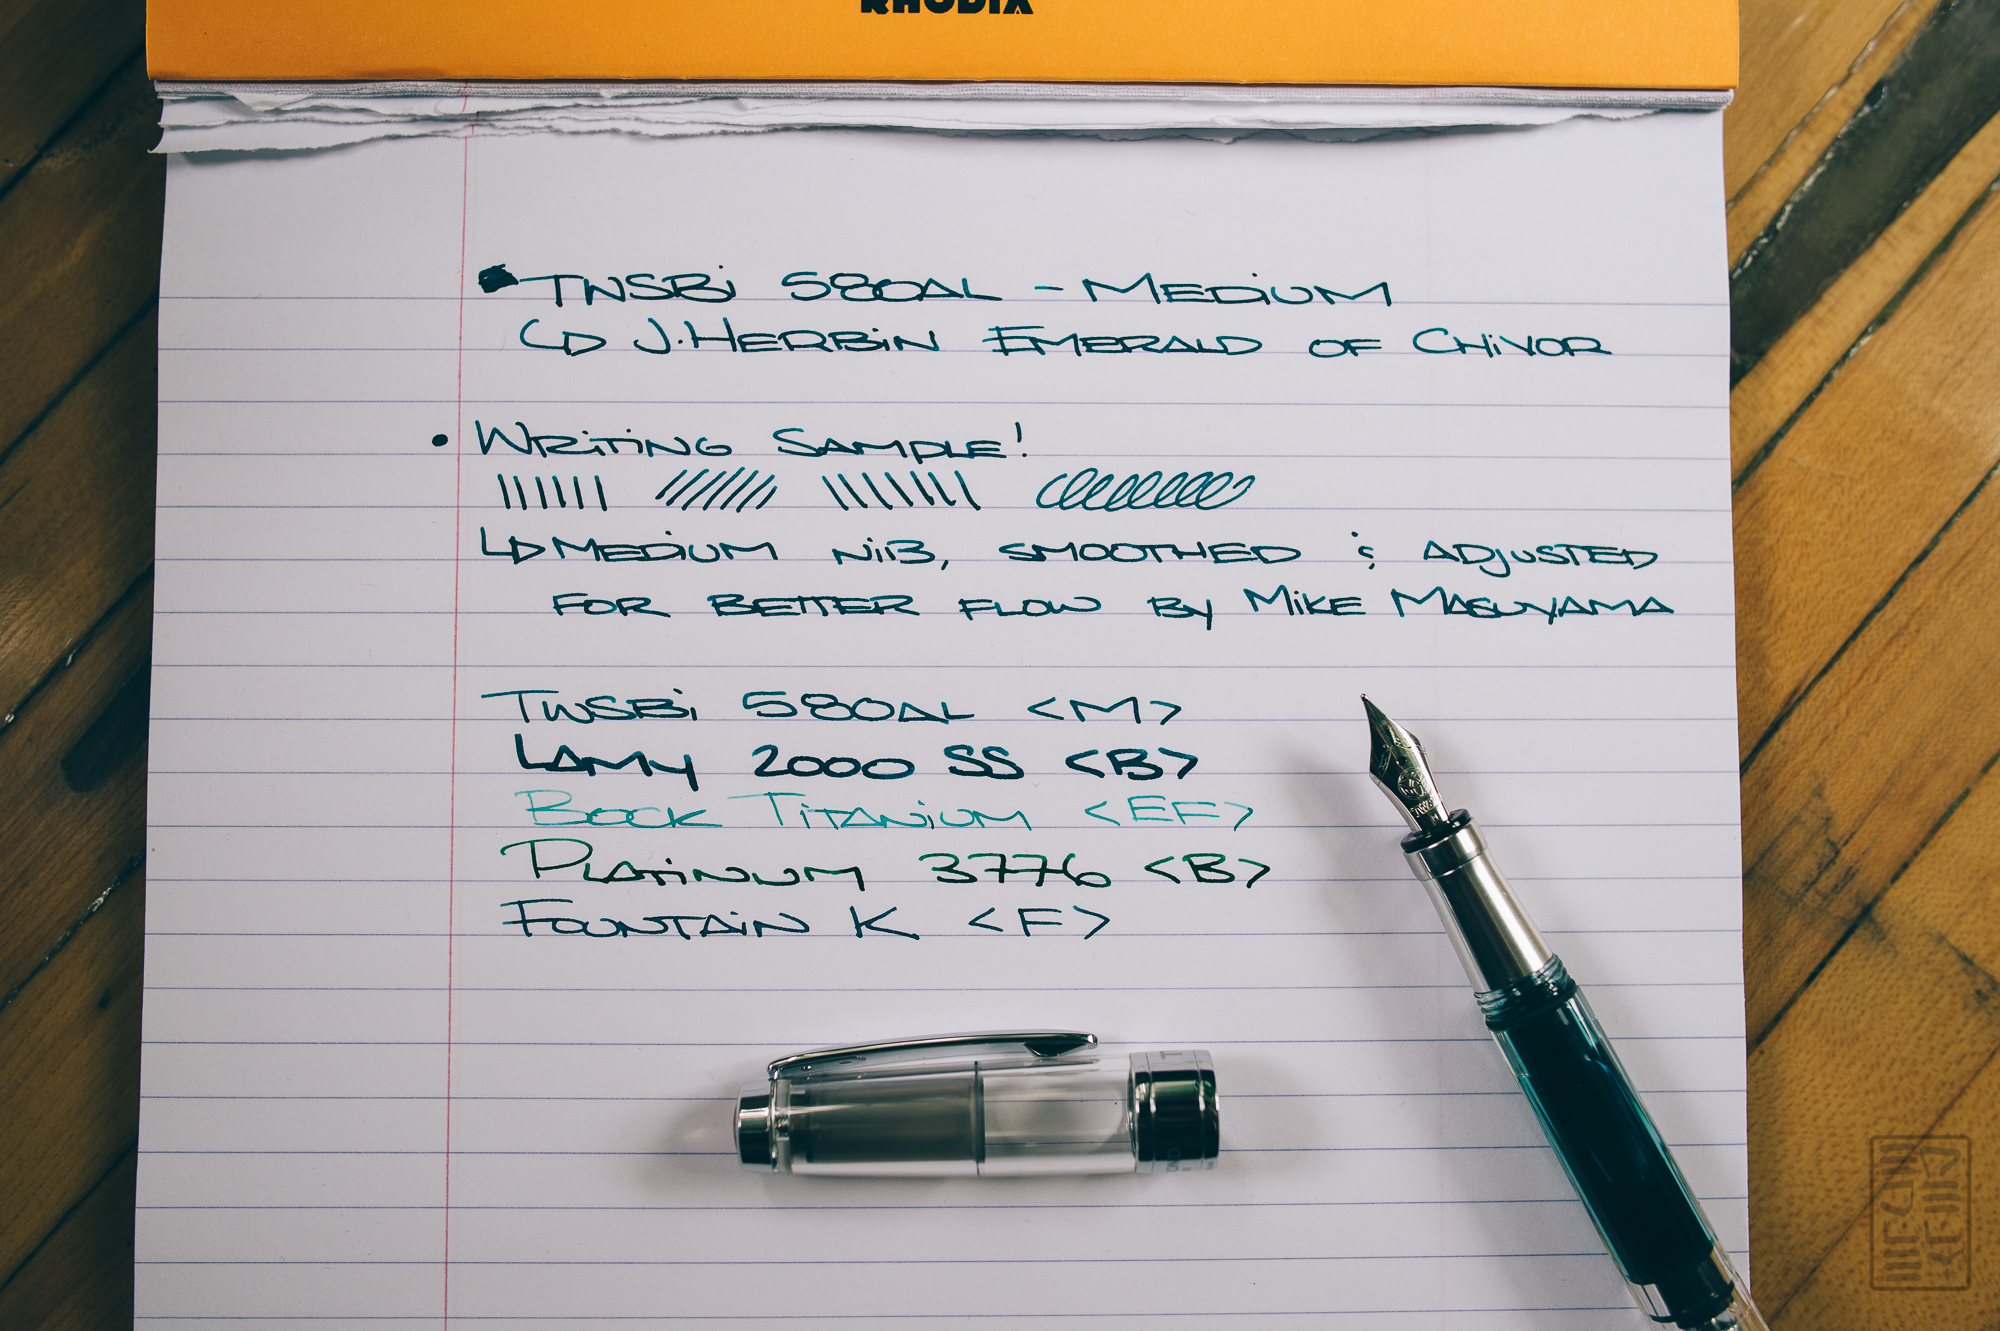 RHODIA
TWSBi 580AL - MEDiUM
J. HERBiN EMERALD OF CHiVOR
• WRiTiNG SAMPLE!
MEDiUM NiB, SMOOTHED & ADJUSTED
FOR BETTER FLOW By MiKE MASUyAMA
TWSBi 580AL <M>
LAMy 2000 SS <B>
BOCK TiTANiUM <EF>
PLATiNUM 3776 <B>
FOUNTAiN K <F>